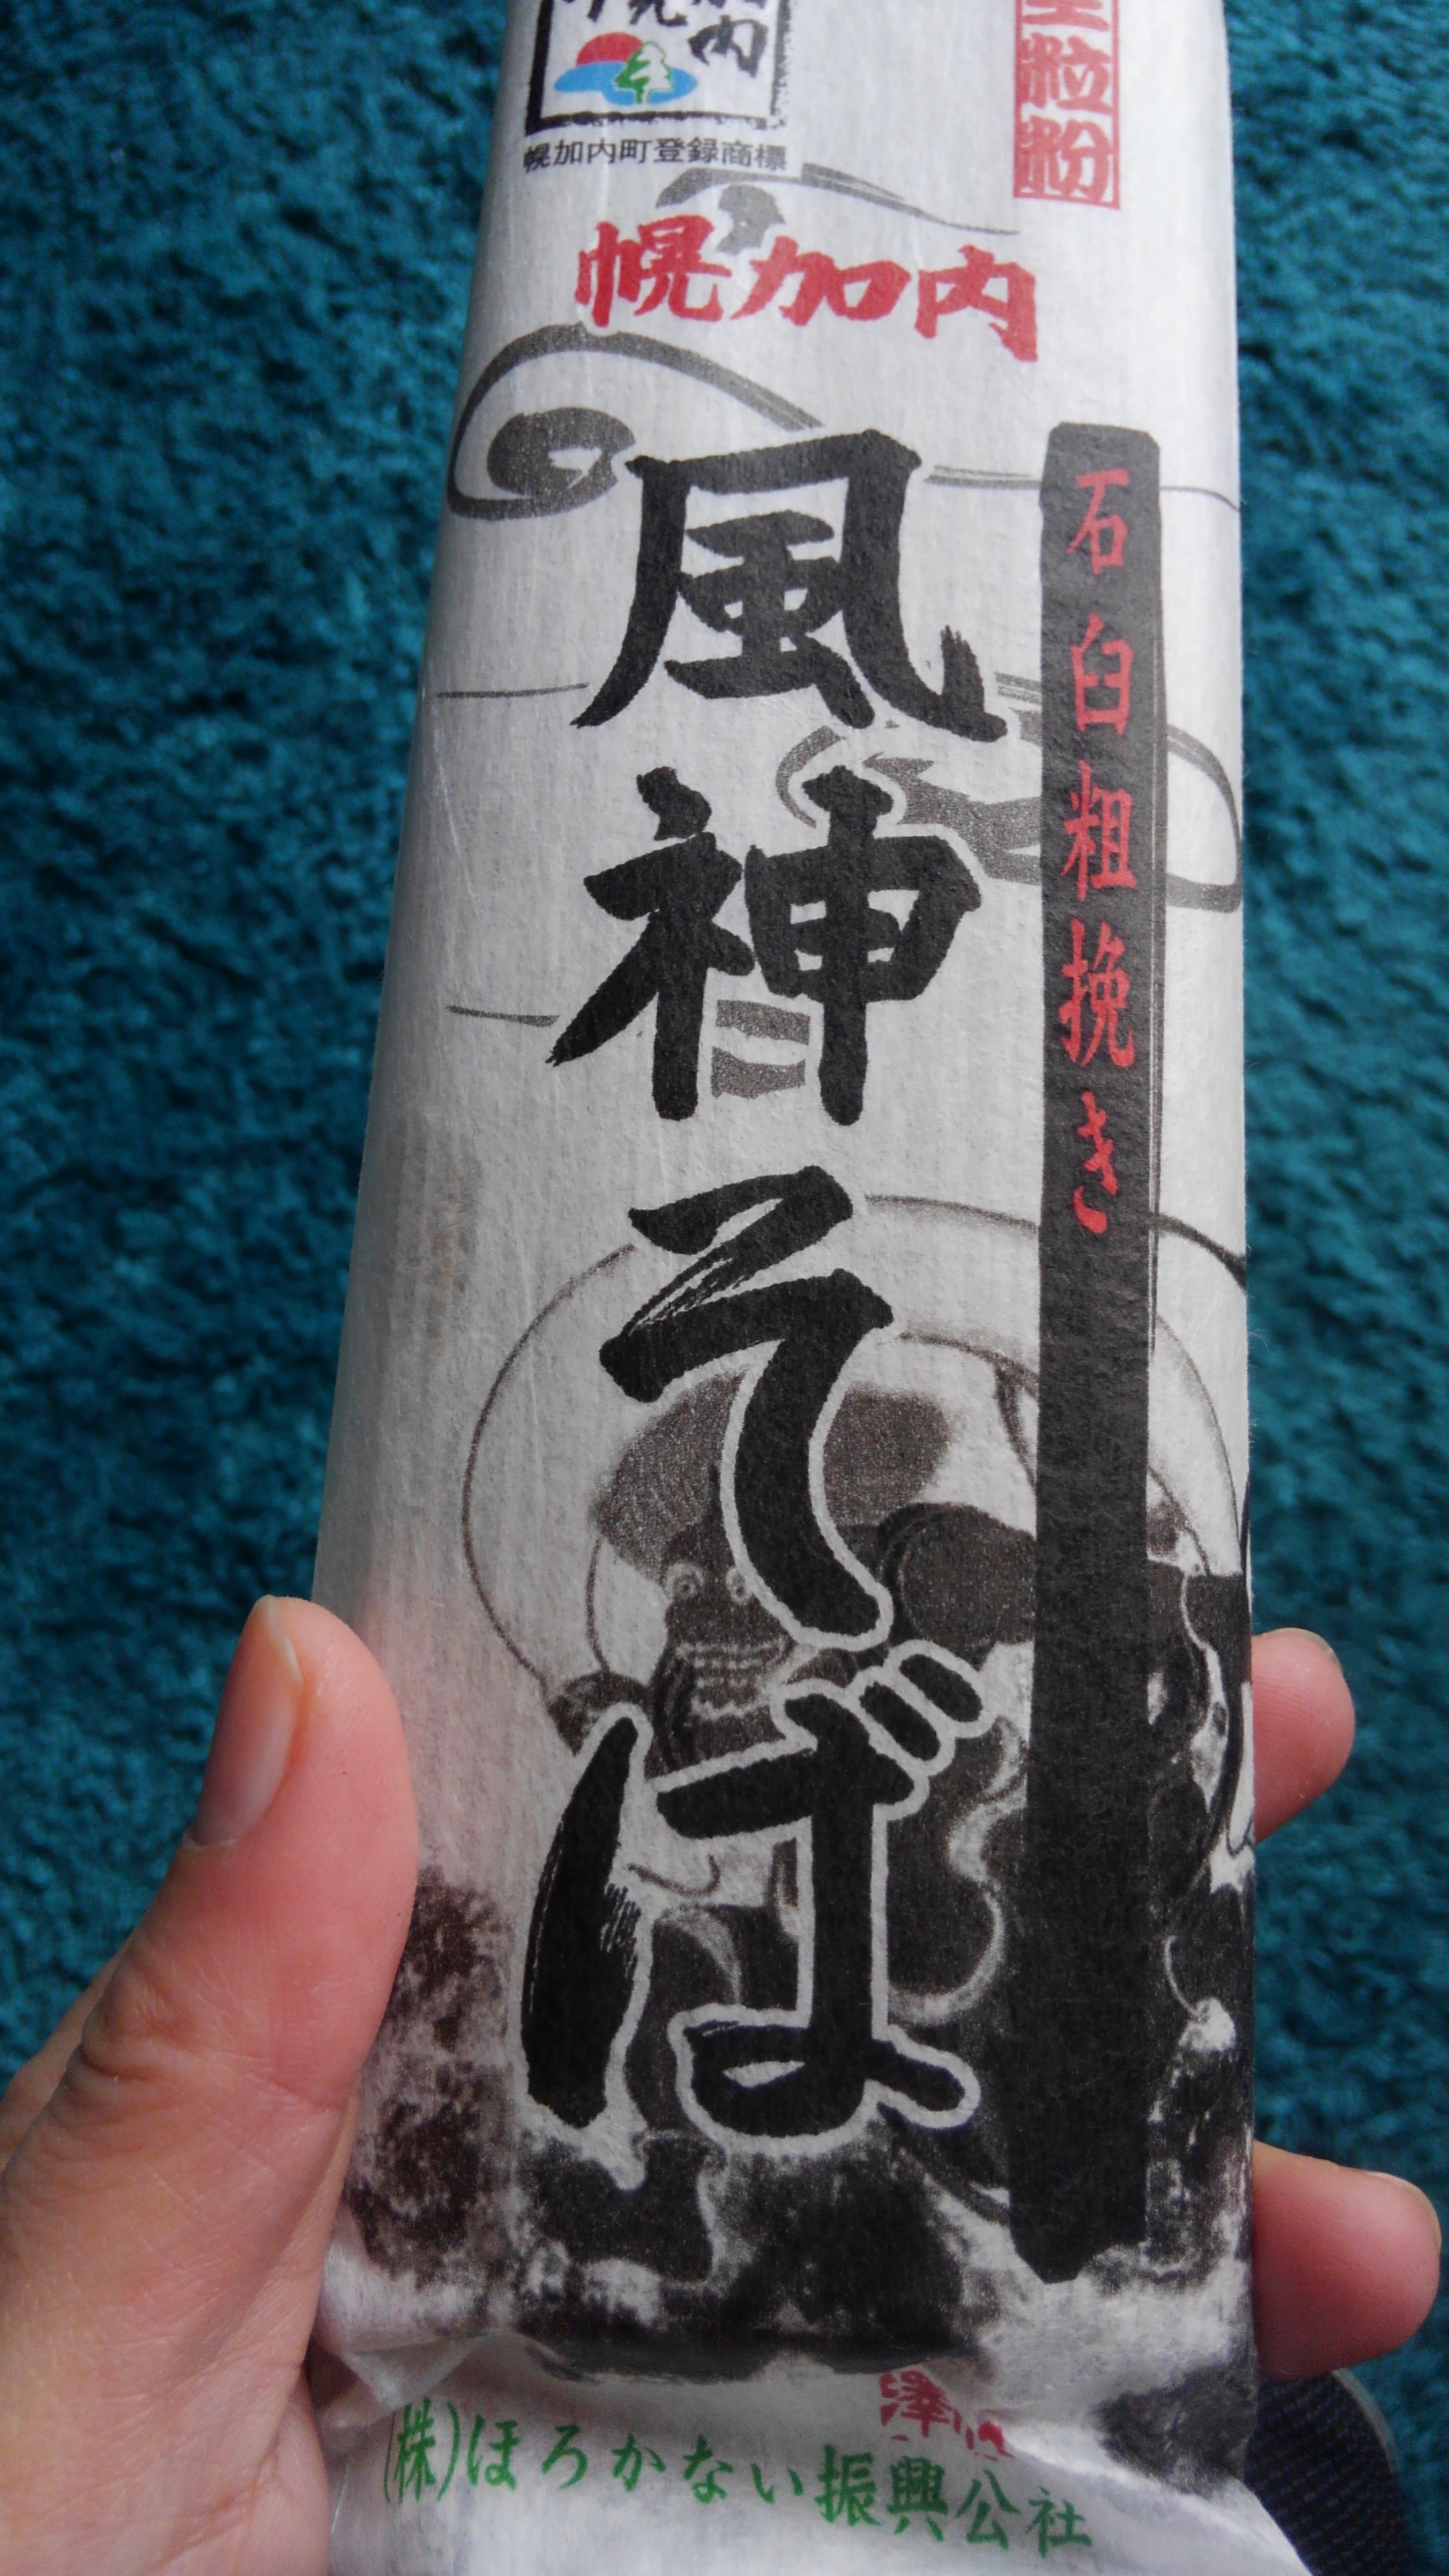 幌加内町登録商標
粒粉
幌加内
風神そば
石臼粗挽き
(株)ほろかない振興公社